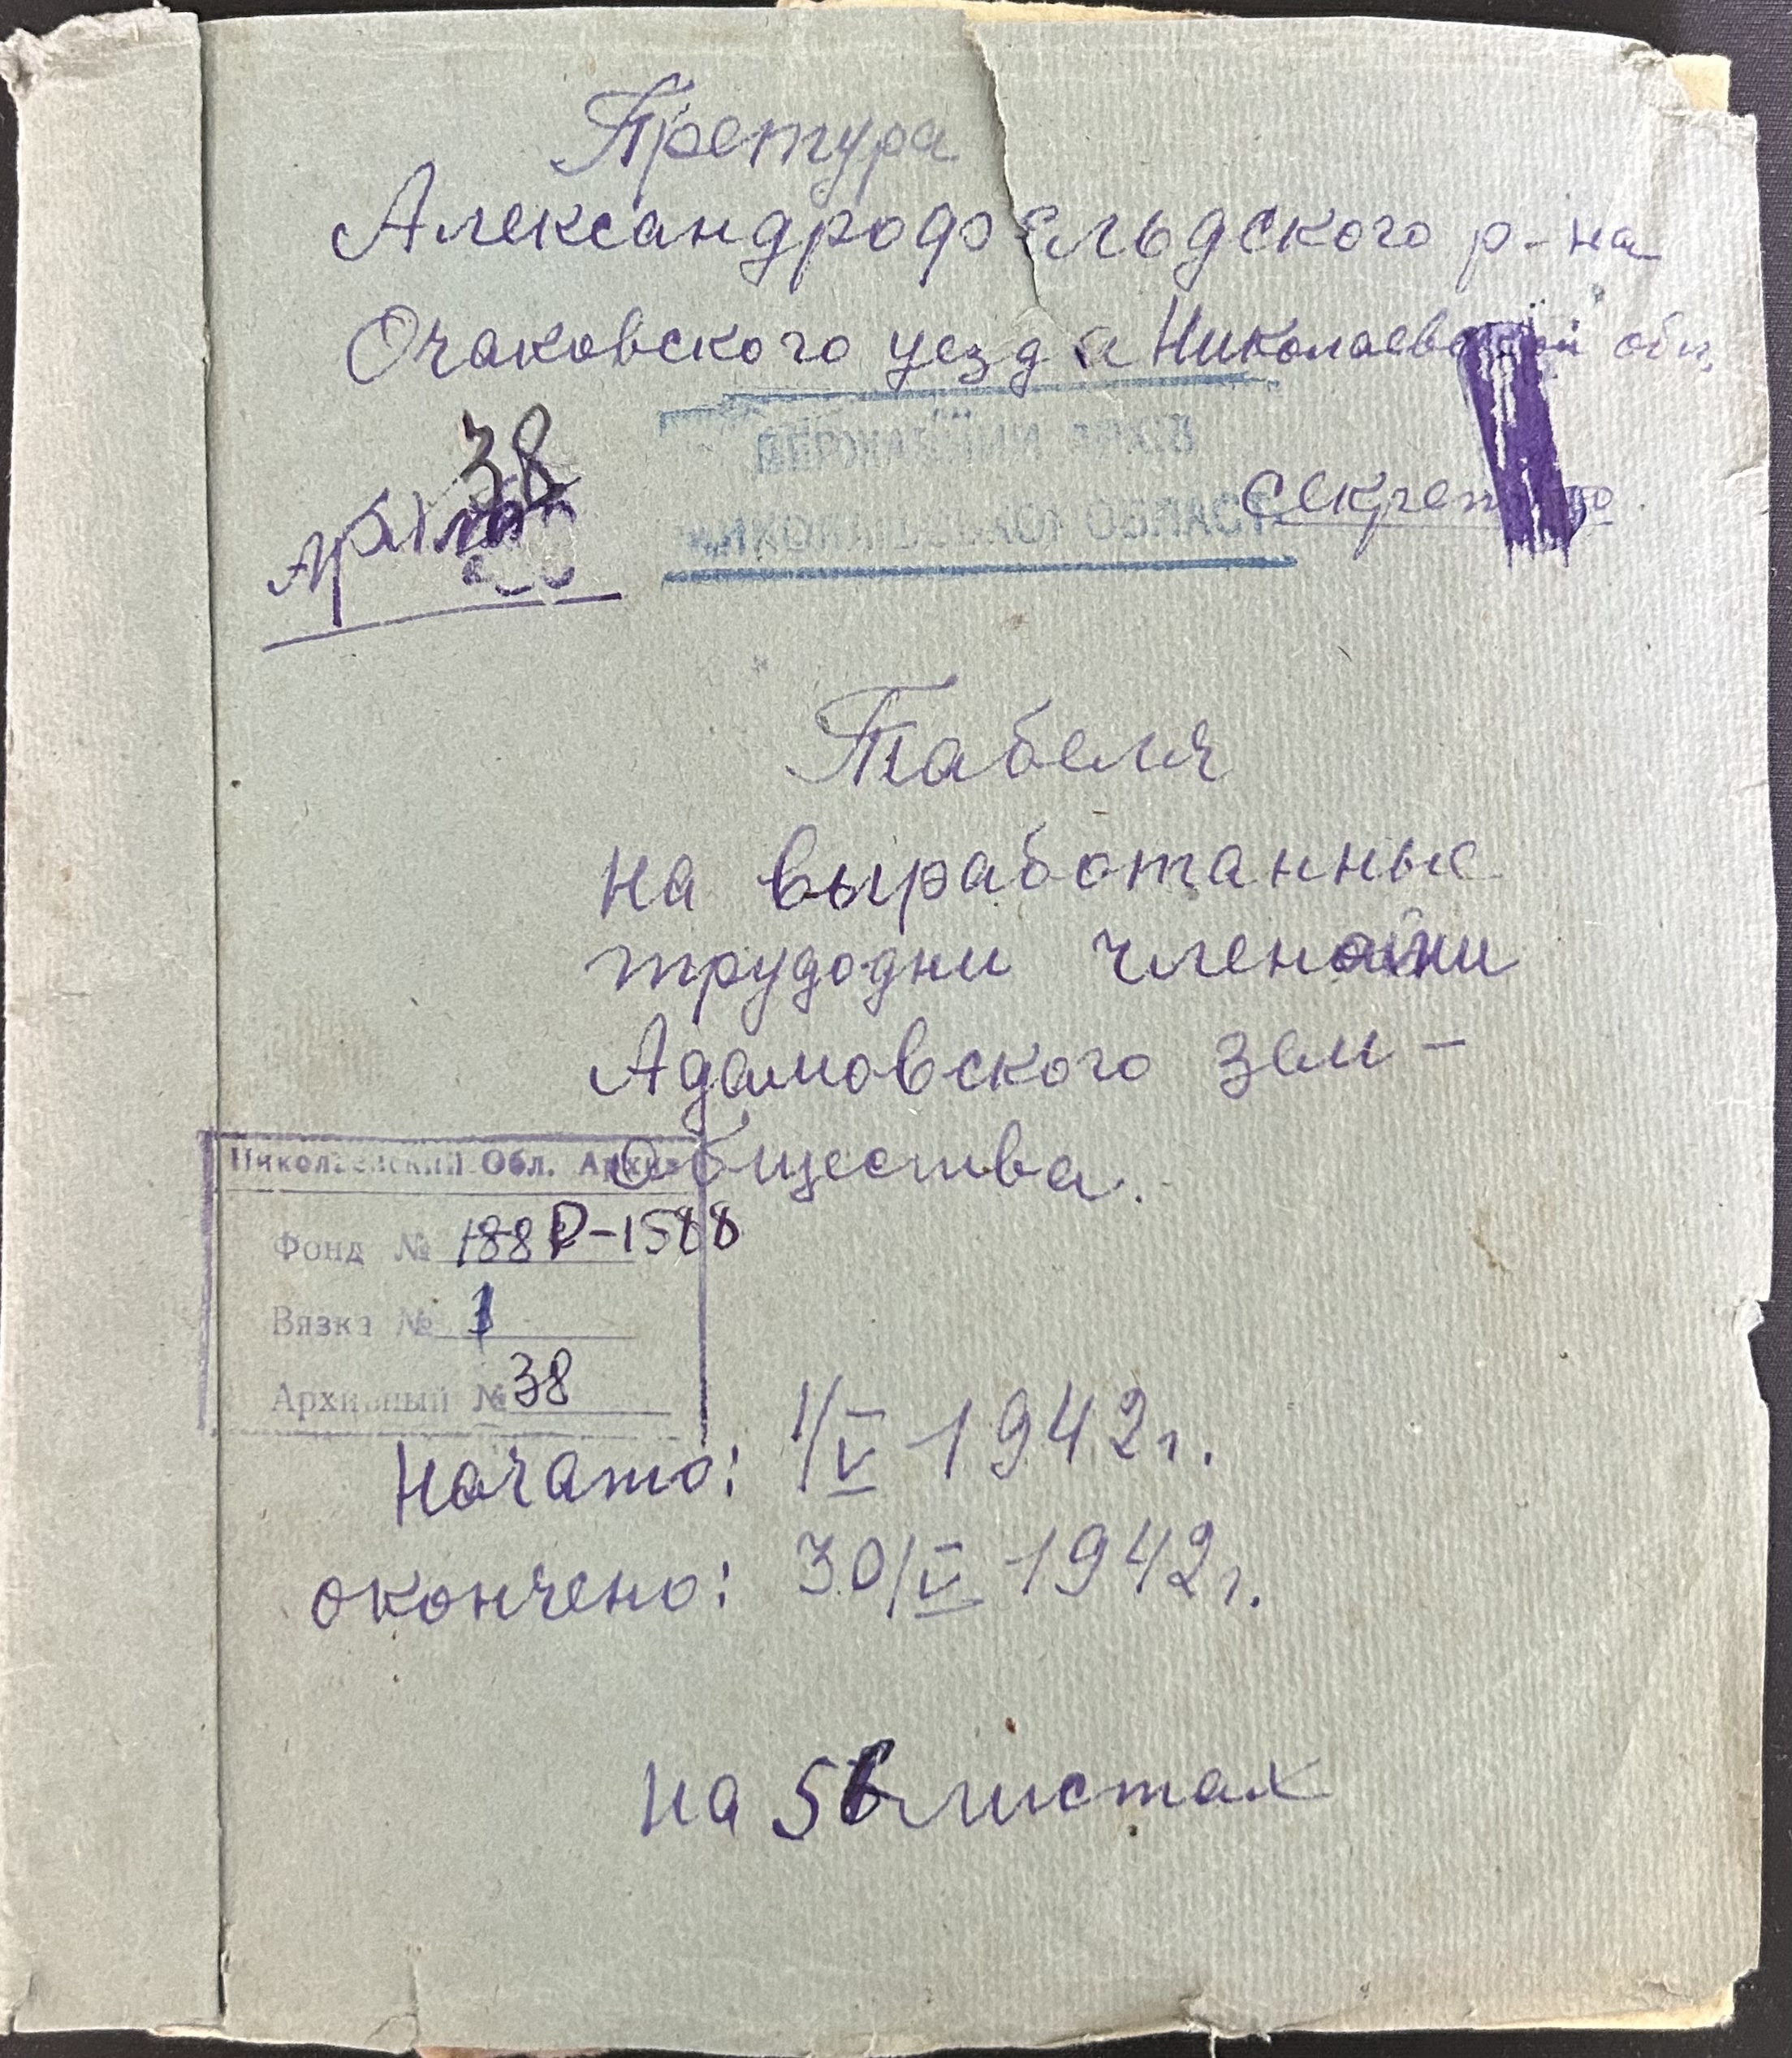 Претура
Александрофельдского р-на
Очаковского уезда Николаевской обл.
38
Арх. №
ДЕРЖАВНИЙ АРХІВ
МИКОЛАЇВСЬКОЇ ОБЛАСТІ
Секретно.
Табеля
на выработанные
трудодни членами
Адамовского зем-
общества.
Николаевский Обл. Архив
Фонд № 188 Р-1588
Вязка № 1
Архивный № 38
Начато: 1/V 1942 г.
окончено: 30/V 1942 г.
на 56 листах